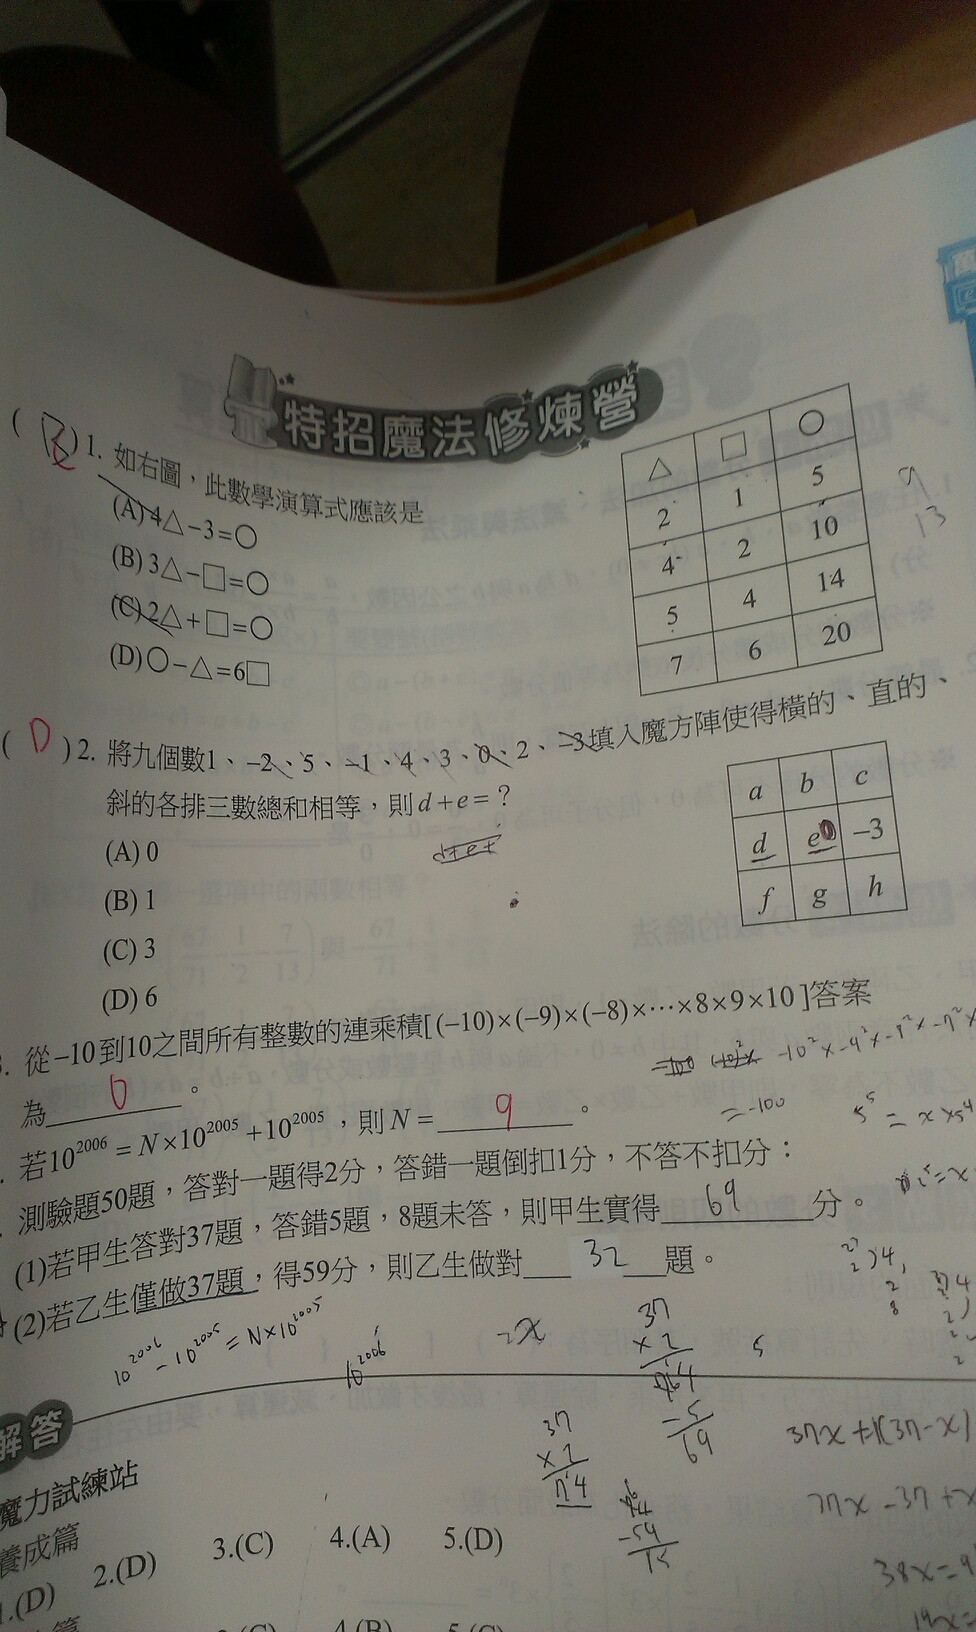 特招魔法修煉營
(B) 1. 如右圖，此數學演算式應該是
(A) 4△−3=○
(B) 3△−□=○
(C) 2△+□=○
(D) ○−△=6□
△ □ ○
2 1 5
4 2 10
5 4 14
7 6 20
9
13
( D ) 2. 將九個數1、−2、5、−1、4、3、0、2、−3填入魔方陣使得橫的、直的、
斜的各排三數總和相等，則d+e=？
(A) 0
(B) 1
(C) 3
(D) 6
d+e+
a b c
d e −3
f g h
從−10到10之間所有整數的連乘積[(−10)×(−9)×(−8)×⋯×8×9×10]答案
為 0 。
=-100
若10²⁰⁰⁶=N×10²⁰⁰⁵+10²⁰⁰⁵，則N= 9 。
測驗題50題，答對一題得2分，答錯一題倒扣1分，不答不扣分：
(1)若甲生答對37題，答錯5題，8題未答，則甲生實得 69 分。
(2)若乙生僅做37題，得59分，則乙生做對 32 題。
10²⁰⁰⁶−10²⁰⁰⁵=N×10²⁰⁰⁵
10²⁰⁰⁶
37
×2
−5
69
37
×2
74
解答
魔力試練站
養成篇
1.(D) 2.(D) 3.(C) 4.(A) 5.(D)